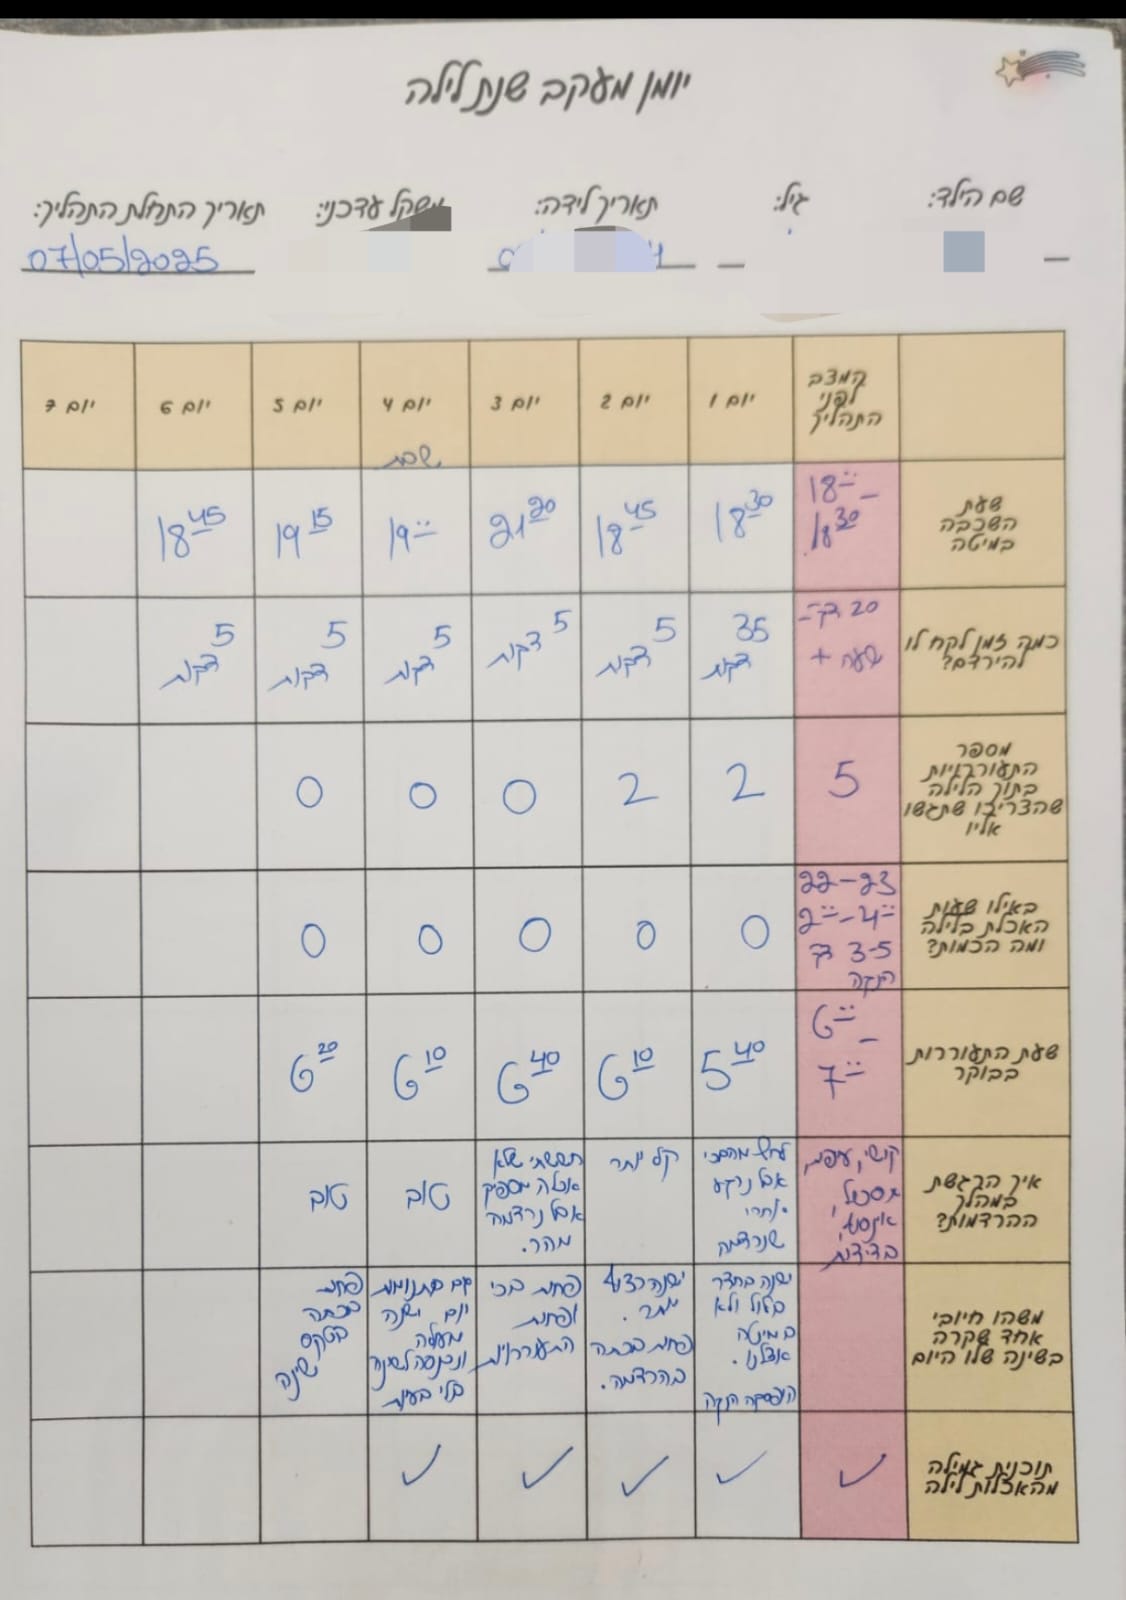 יומן מעקב שנת לילה
שם הילד: גיל: תאריך לידה: משקל עדכני: תאריך התחלת התהליך:
07/05/2025
המצב
לפני
התהליך
יום 1
יום 2
יום 3
יום 4
שבת
יום 5
יום 6
יום 7
שעת
השכבה
במיטה
18:00 –
18:30
18:30
18:45
21:20
19:00
19:15
18:45
כמה זמן לקח לו
להירדם?
20 דק' –
שעה +
35
דקות
5
דקות
5
דקות
5
דקות
5
דקות
5
דקות
מספר
התעוררויות
בתוך הלילה
שהצריכו שתגשו
אליו
5
2
2
0
0
0
באילו שעות
האכלת בלילה
ומה הכמות?
22-23
2:00-4:00
3-5 דק
הנקה
0
0
0
0
0
שעת התעוררות
בבוקר
6:00 –
7:00
5:40
6:10
6:40
6:10
6:20
איך הרגשת
במהלך
ההרדמות?
קושי, עייפות,
תסכול,
בדידות
לחץ מהבכי
אבל נרגע
אחרי
שנרדמה
קל יותר
חששתי שלא
אכלה מספיק
אבל נרדמה
מהר.
טוב
טוב
משהו חיובי
אחד שקרה
בשינה שלו היום
ישנה בחדר
בלול ולא
במיטה
אצלנו.
הפסקה הנקה
ישנה רצוף
יותר.
פחות בכתה
בהרדמה.
פחות בכי
ופחות
התעוררויות
גם בתנומות
יום ישנה
מעולה
ונכנסה לשינה
בלי בעיות
פחות
בכתה
בטקס
שינה
תוכנית גמילה
מהאכלות לילה
✓
✓
✓
✓
✓